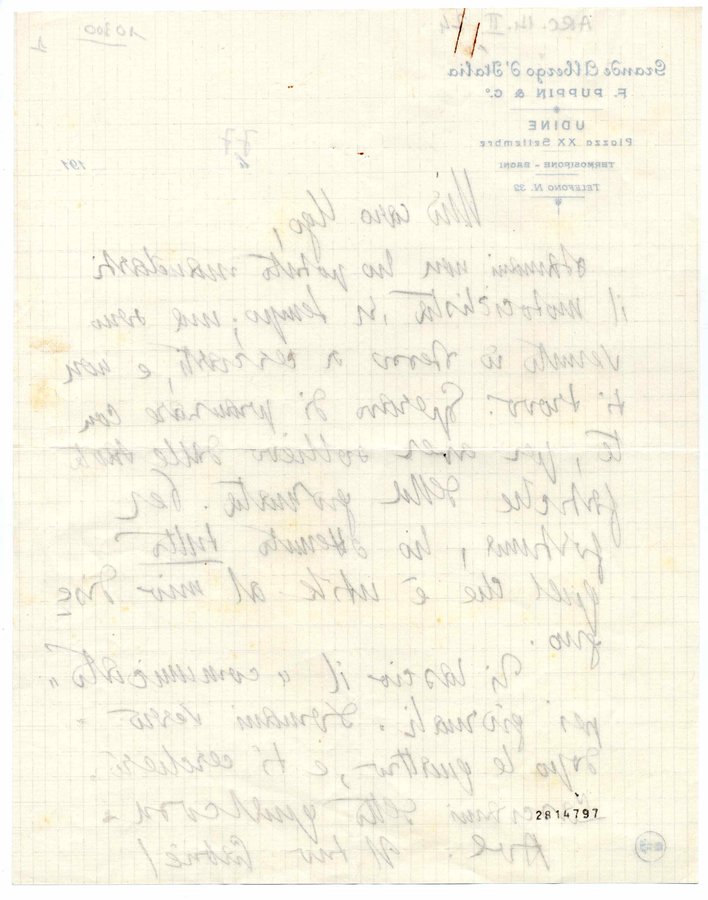 ARC. 14. II
10300
Grande Albergo d'Italia
F. PUPPIN & C.º
UDINE
Piazza XX Settembre
TERMOSIFONE - BAGNI
TELEFONO N. 32
191
Mio caro Ugo,
stamani non ho potuto mandarti
il motociclista in tempo; ma sono
venuto io stesso a cercarti, e non
ti trovo. Speravo di pranzare con
te, per aver sollievo dalle tante
fatiche della giornata. Per
fortuna, ho ottenuto tutto
quel che è utile al mio dise
gno.
Ti lascio il "comunicato"
pei giornali. Domani verrò
dopo le quattro, e ti cercherò.
detto qualcosa
2814797
Ave. Il tuo